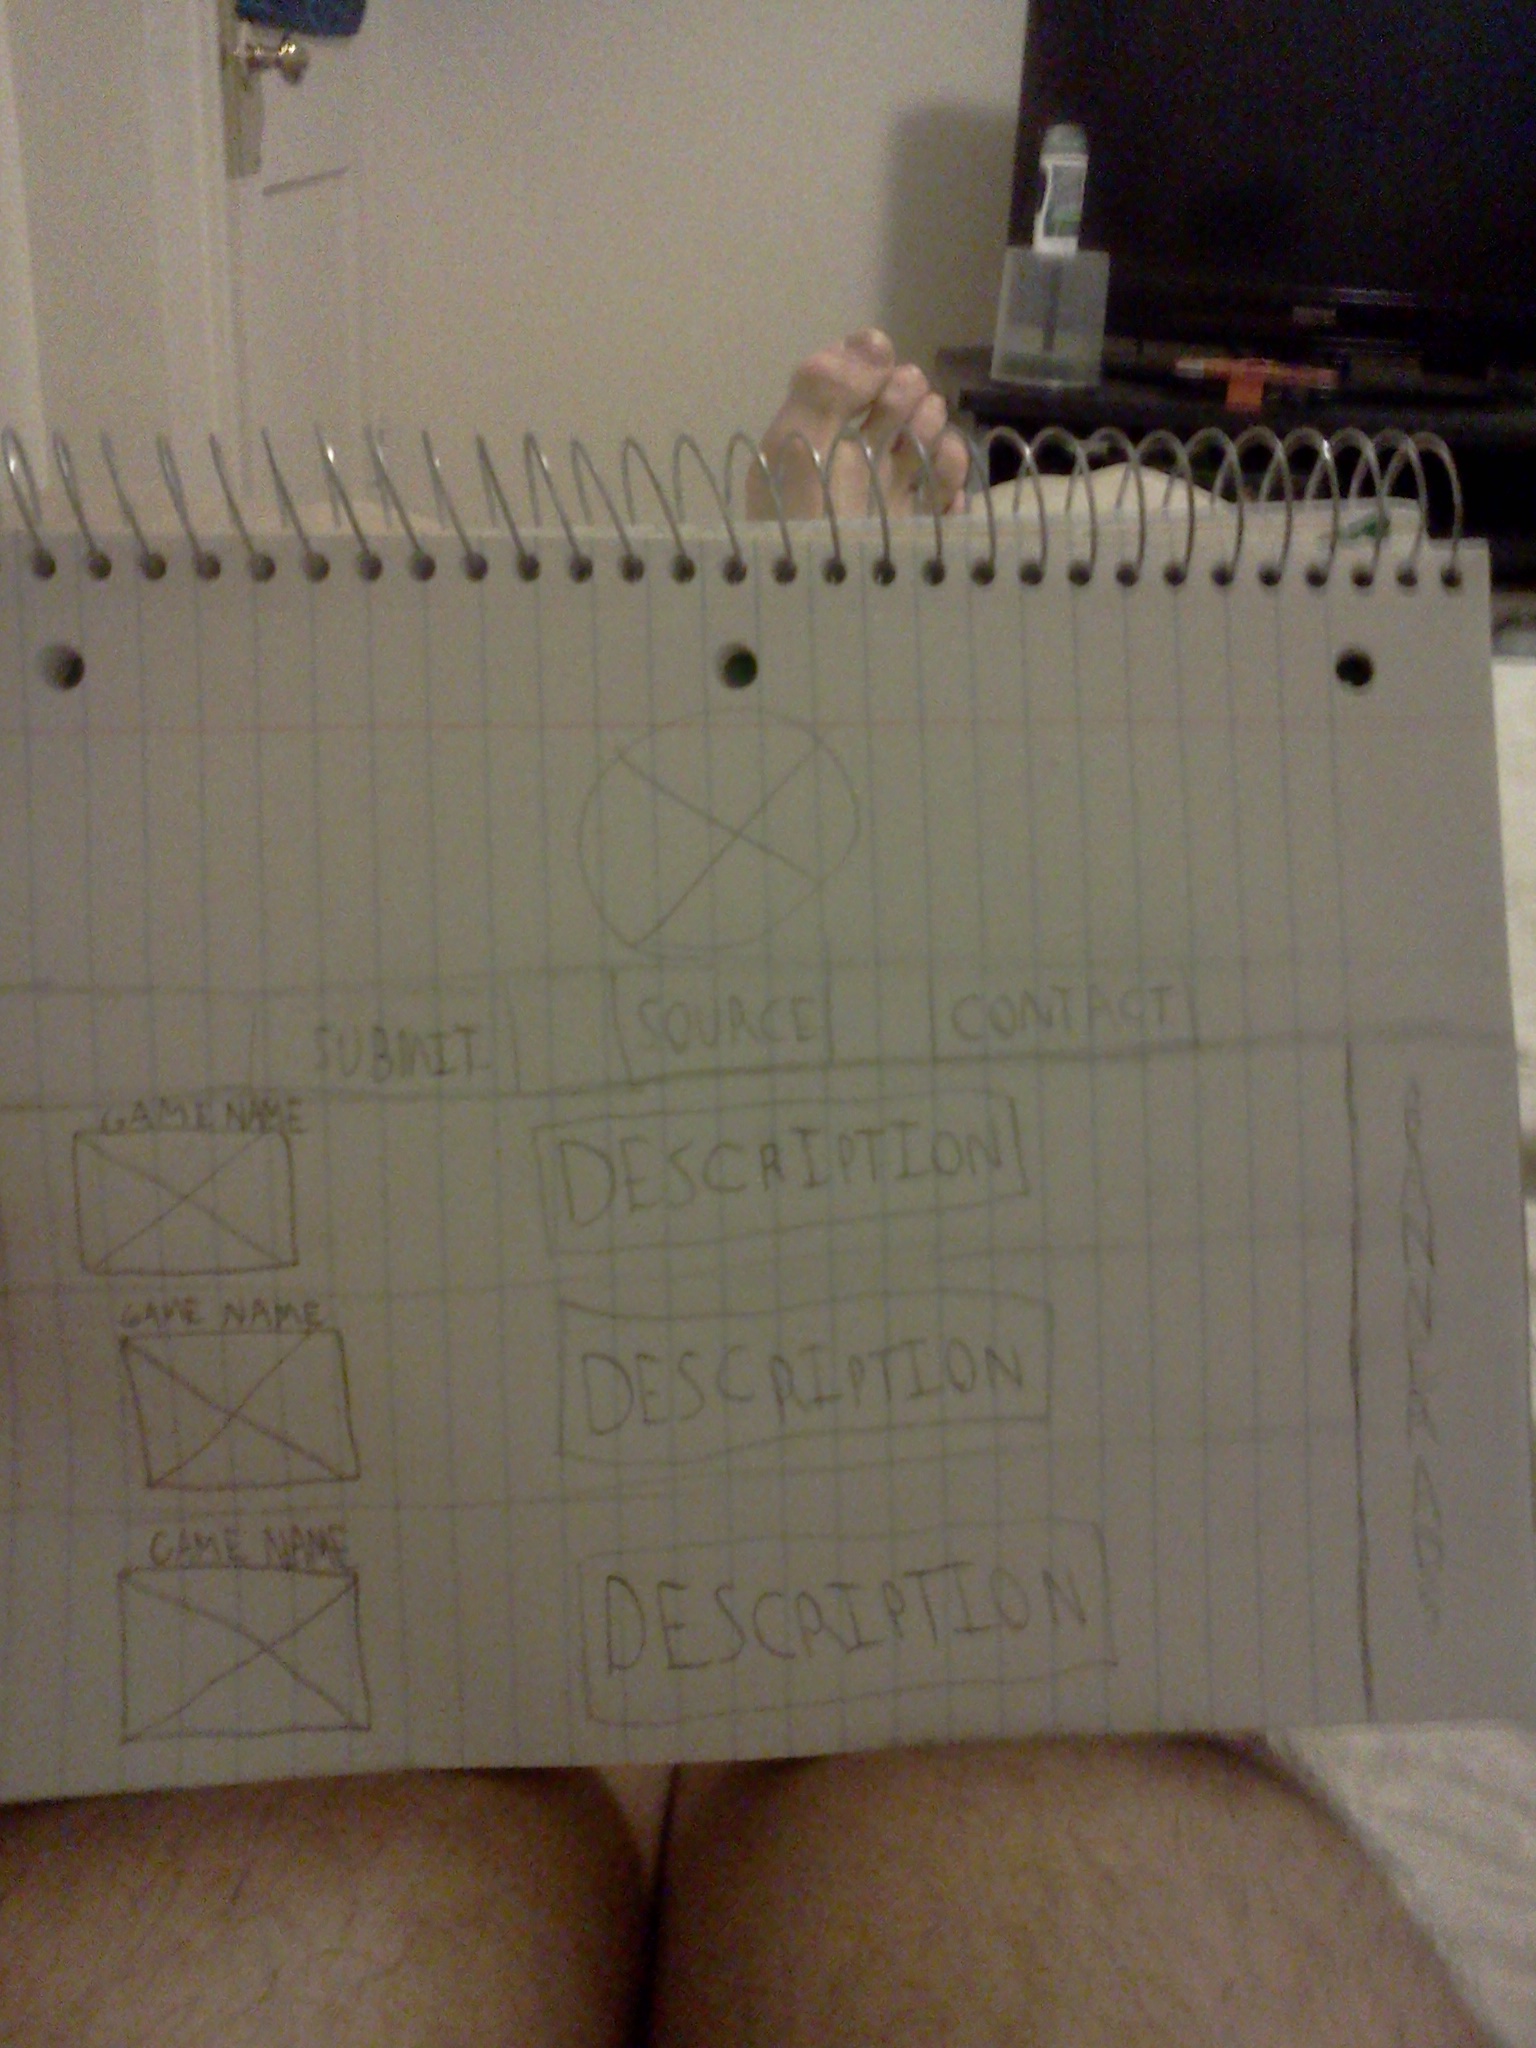 SUBMIT
SOURCE
CONTACT
GAME NAME
DESCRIPTION
GAME NAME
DESCRIPTION
GAME NAME
DESCRIPTION
BANNER ADS